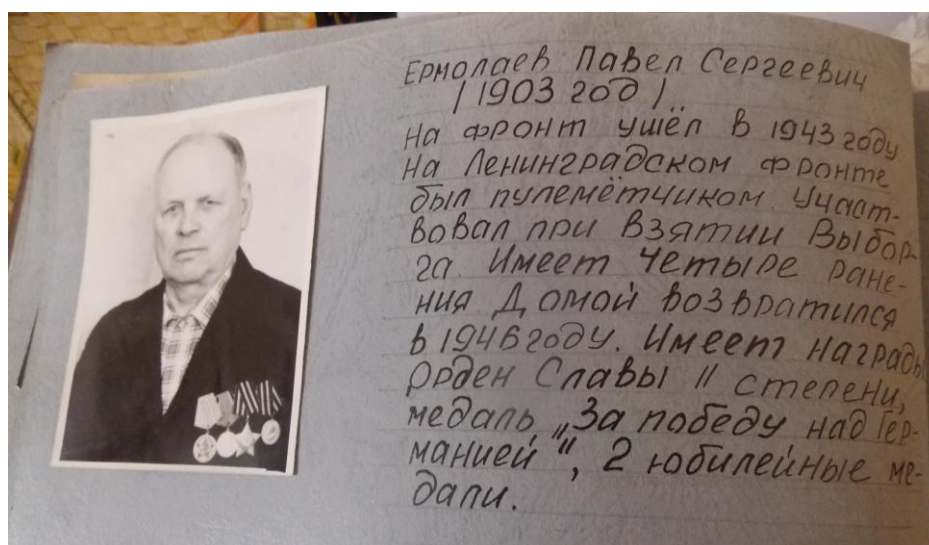 Ермолаев Павел Сергеевич
/1903 год/
На фронт ушёл в 1943 году
На Ленинградском фронте
был пулемётчиком. Участ-
вовал при взятии Выбор-
га. Имеет четыре ране-
ния Домой возвратился
в 1946 году. Имеет награды
орден Славы II степени,
медаль „За победу над Гер-
манией", 2 юбилейные ме-
дали.